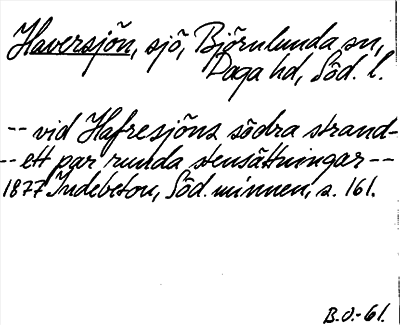 Haversjön, sjö, Björnlunda sn,
Daga hd, Söd. l.
-- vid Hafresjöns södra strand-
-- ett par runda stensättningar --
1877 Indebetou, Söd. minnen, s. 161.
B.O.-61.